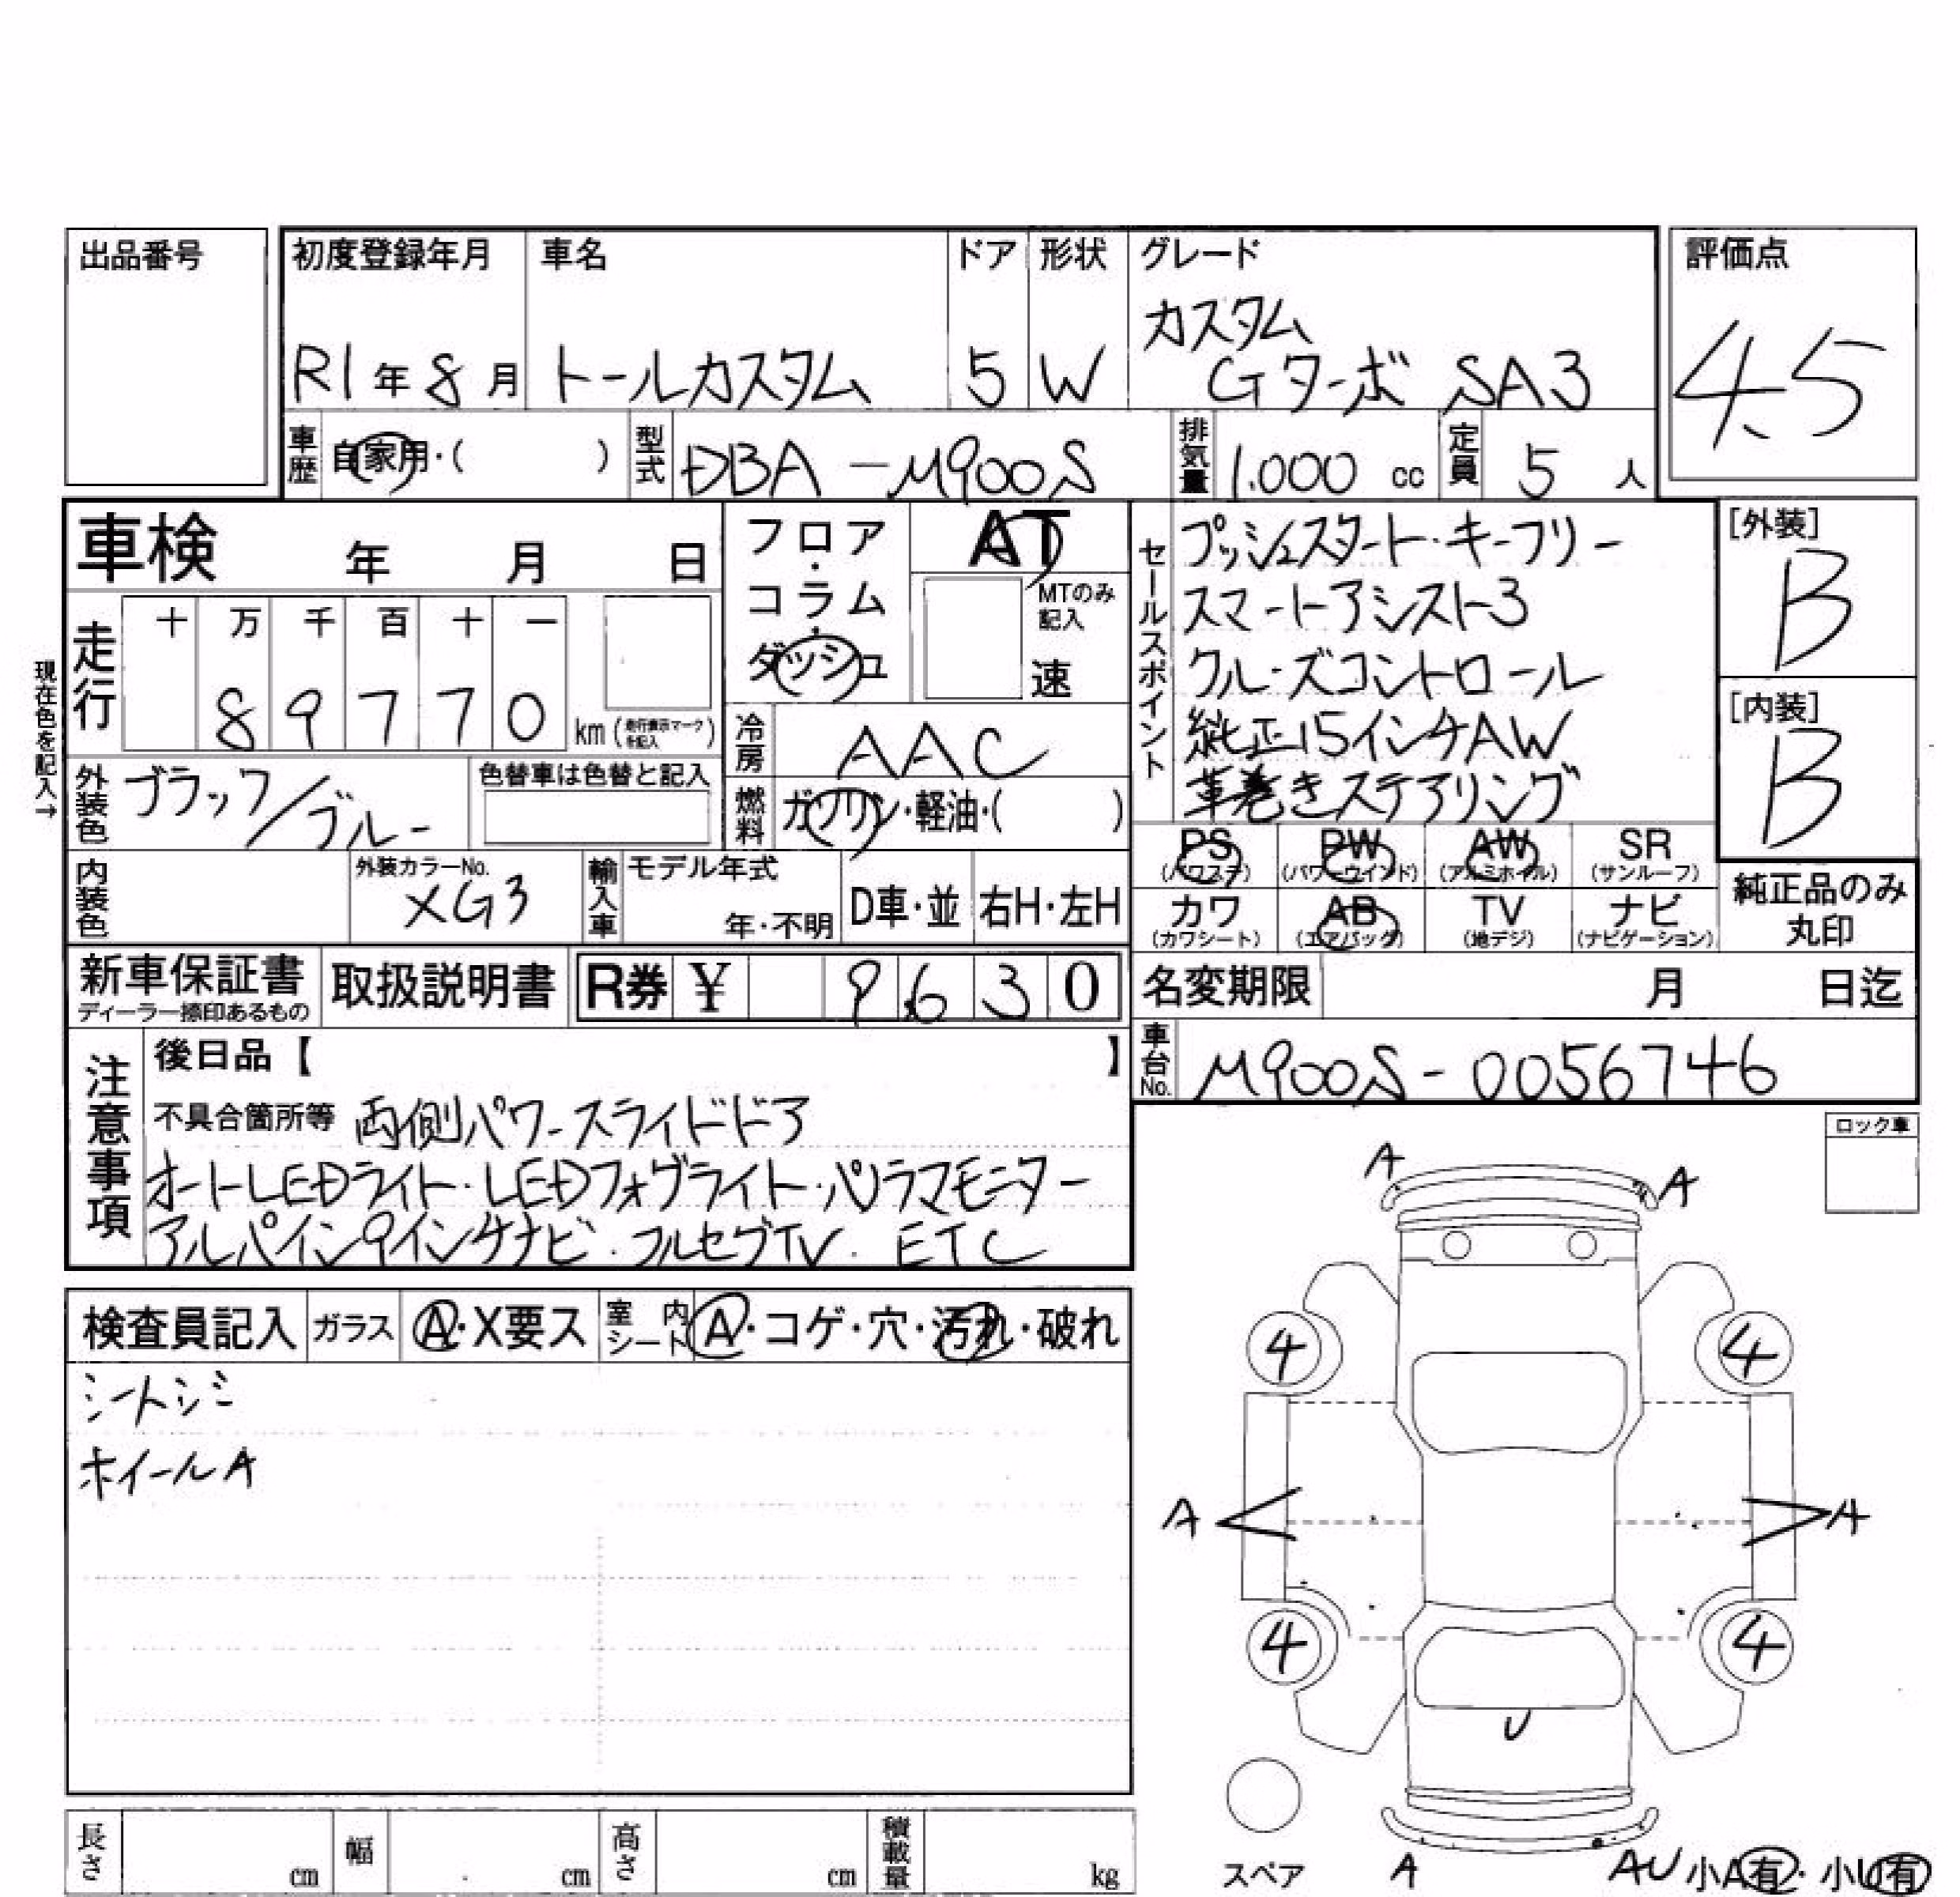 出品番号
初度登録年月 車名 ドア 形状 グレード 評価点
カスタム
R1年8月 トールカスタム 5 W Gターボ SA3 4.5
車歴 自家用・( ) 型式 DBA-M900S 排気量 1.000 cc 定員 5 人
車検 年 月 日
フロア・コラム・ダッシュ
AT
MTのみ記入
速
セールスポイント
プッシュスタート・キーフリー
スマートアシスト3
クルーズコントロール
純正15インチAW
革巻きステアリング
[外装]
B
[内装]
B
現在色を記入→
走行 十 万 千 百 十 一
8 9 7 7 0 km (走行表示マークを記入)
冷房 AAC
外装色 ブラック/ブルー 色替車は色替と記入
燃料 ガソリン・軽油・( )
内装色 外装カラーNo. XG3 輸入車 モデル年式 年・不明 D車・並 右H・左H
PS (パワステ) PW (パワーウインド) AW (アルミホイル) SR (サンルーフ)
カワ (カワシート) AB (エアバッグ) TV (地デジ) ナビ (ナビゲーション)
純正品のみ丸印
新車保証書 ディーラー捺印あるもの 取扱説明書 R券 ¥ 9.630
名変期限 月 日迄
車台No. M900S-0056746
注意事項
後日品【 】
不具合箇所等 両側パワースライドドア
オートLEDライト・LEDフォグライト・パノラマモニター
アルパイン9インチナビ・フルセグTV・ETC
ロック車
検査員記入 ガラス A・X要ス 室内シート A・コゲ・穴・汚れ・破れ
シートシミ
ホイールA
A A
4 4
A A
4 4
U
スペア A AU 小A有・小U有
長さ cm 幅 cm 高さ cm 積載量 kg